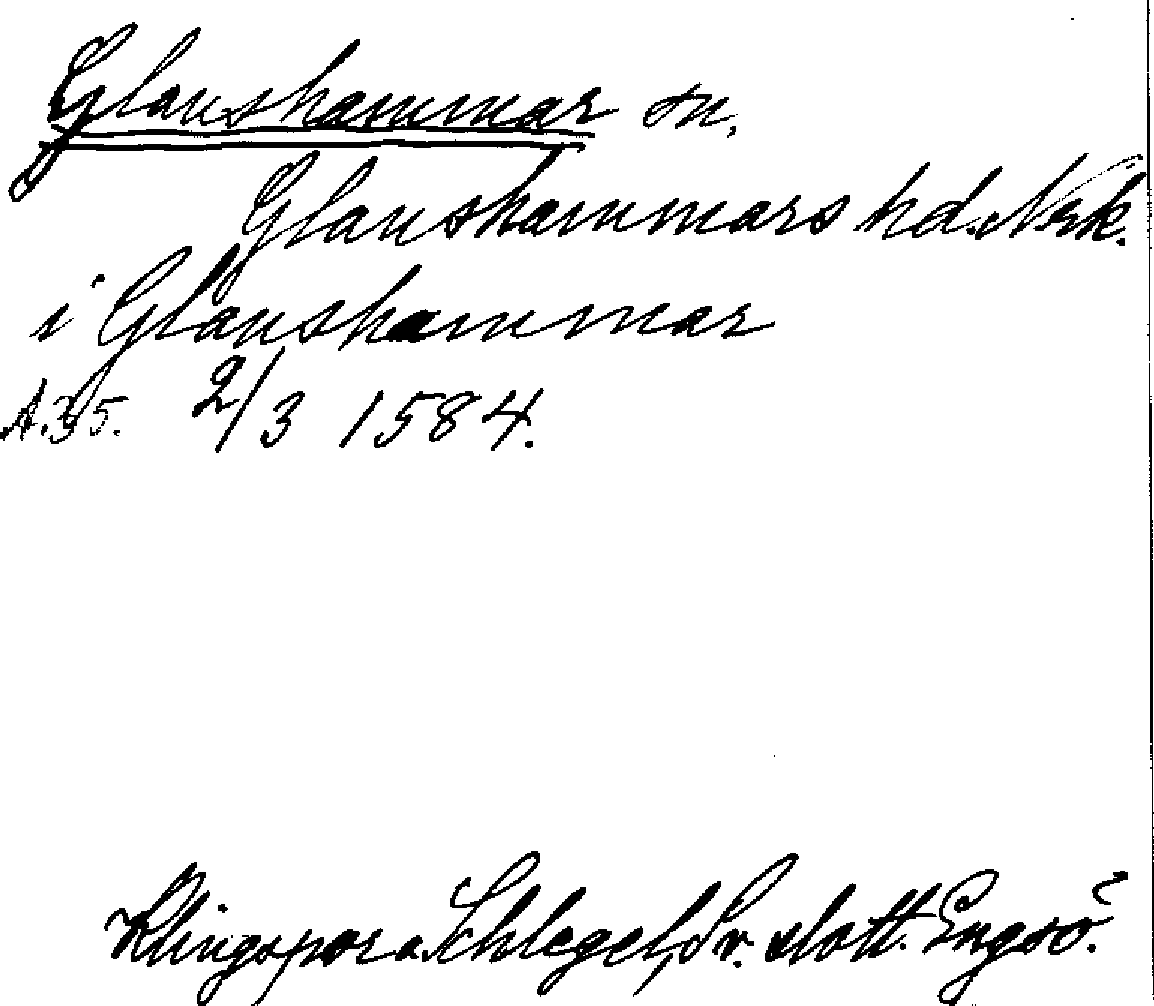 Glanshammar sn.
Glanshammars hd. Nrk.
i Glanshammar
A.35. 2/3 1584.
Klingspor o. Schlegel, Sv. slott. Engsö.